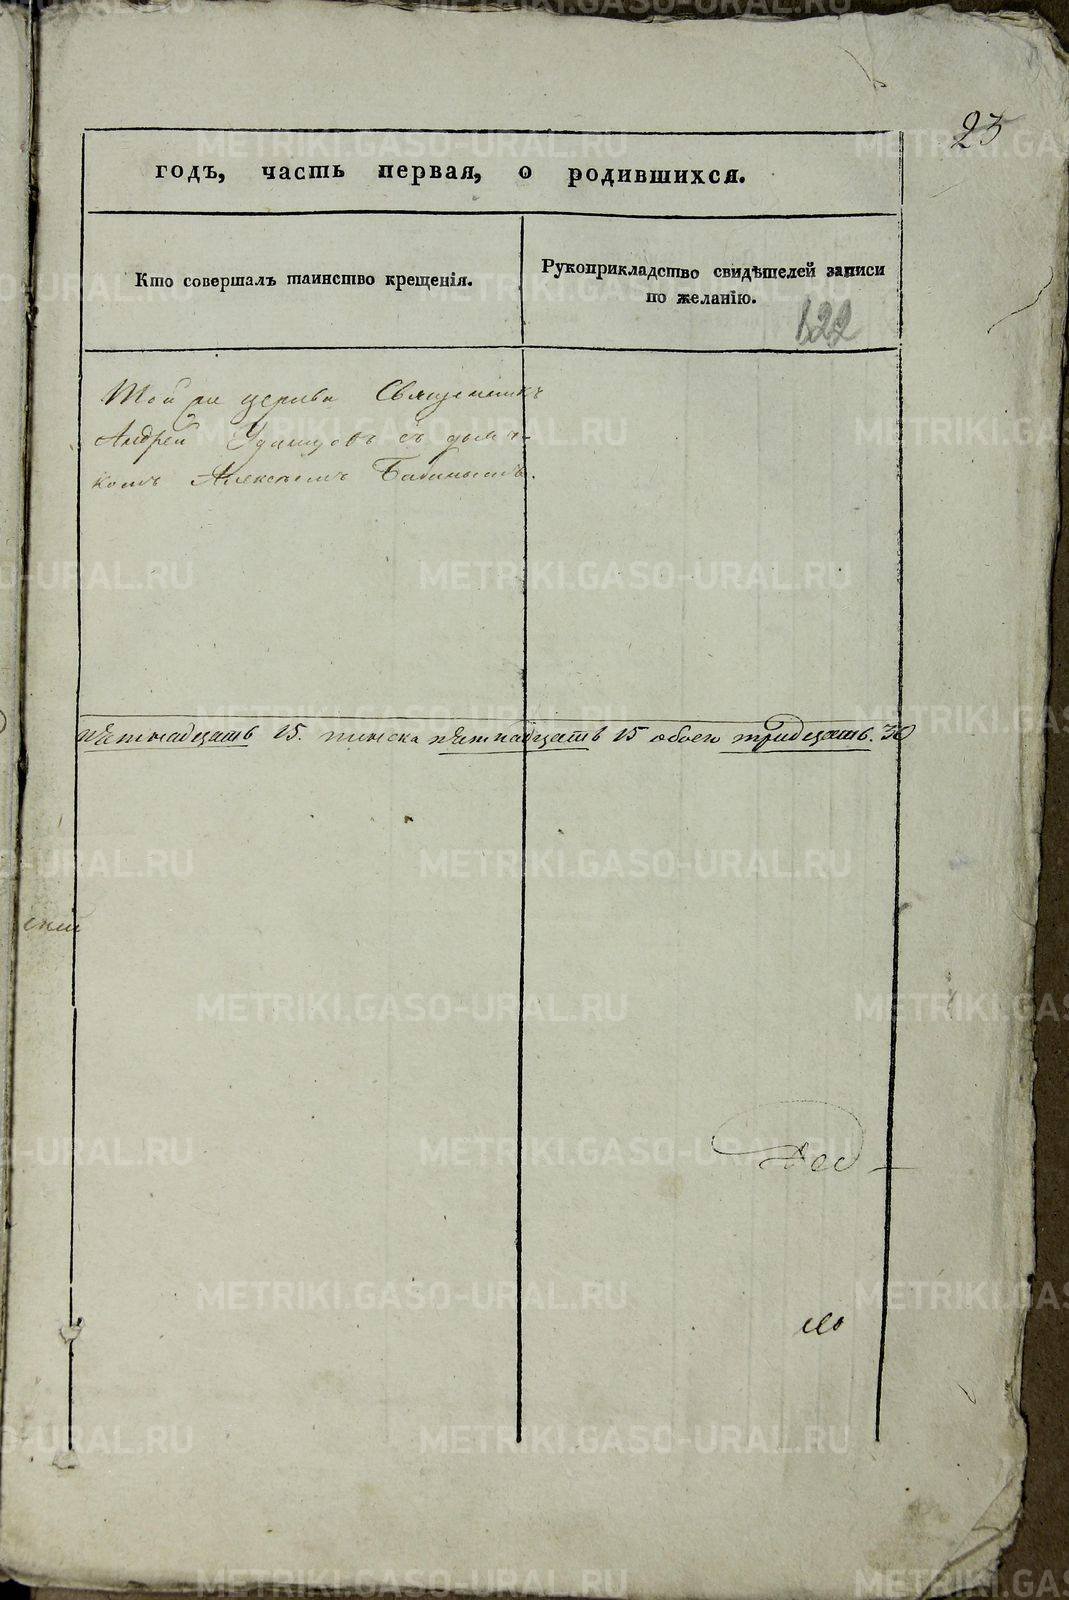 23
годъ, часть первая, о родившихся.
Кто совершалъ таинство крещенія.
Рукоприкладство свидѣтелей записи
по желанію.
122
Той же церкви Священникъ
Андрей Удинцовъ съ дьяч-
комъ Алексѣемъ Бабинымъ.
пятнадцать 15. женска пятнадцать 15 обоего тридцать. 30
METRIKI.GASO-URAL.RU